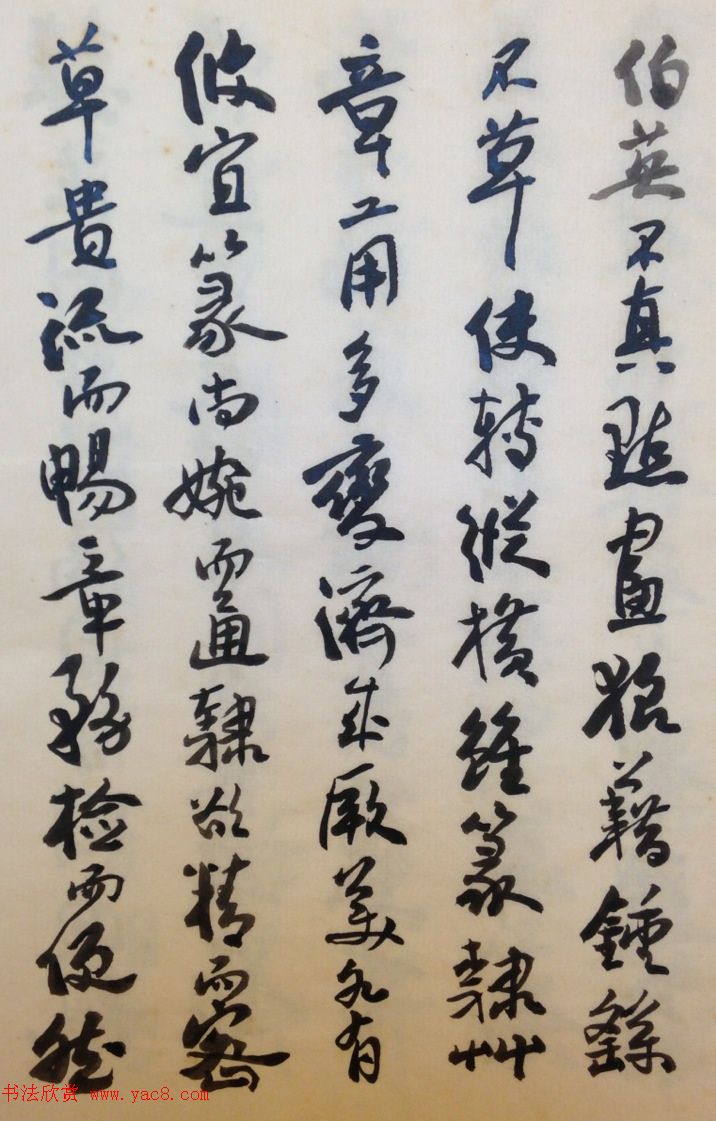 伯英不真點畫狼藉鍾繇
不草使轉縱横雖篆隸艸
章工用多變濟成厥美各有
攸宜篆尚婉而通隸欲精而密
草貴流而暢章務檢而便然
书法欣赏 www.yac8.com